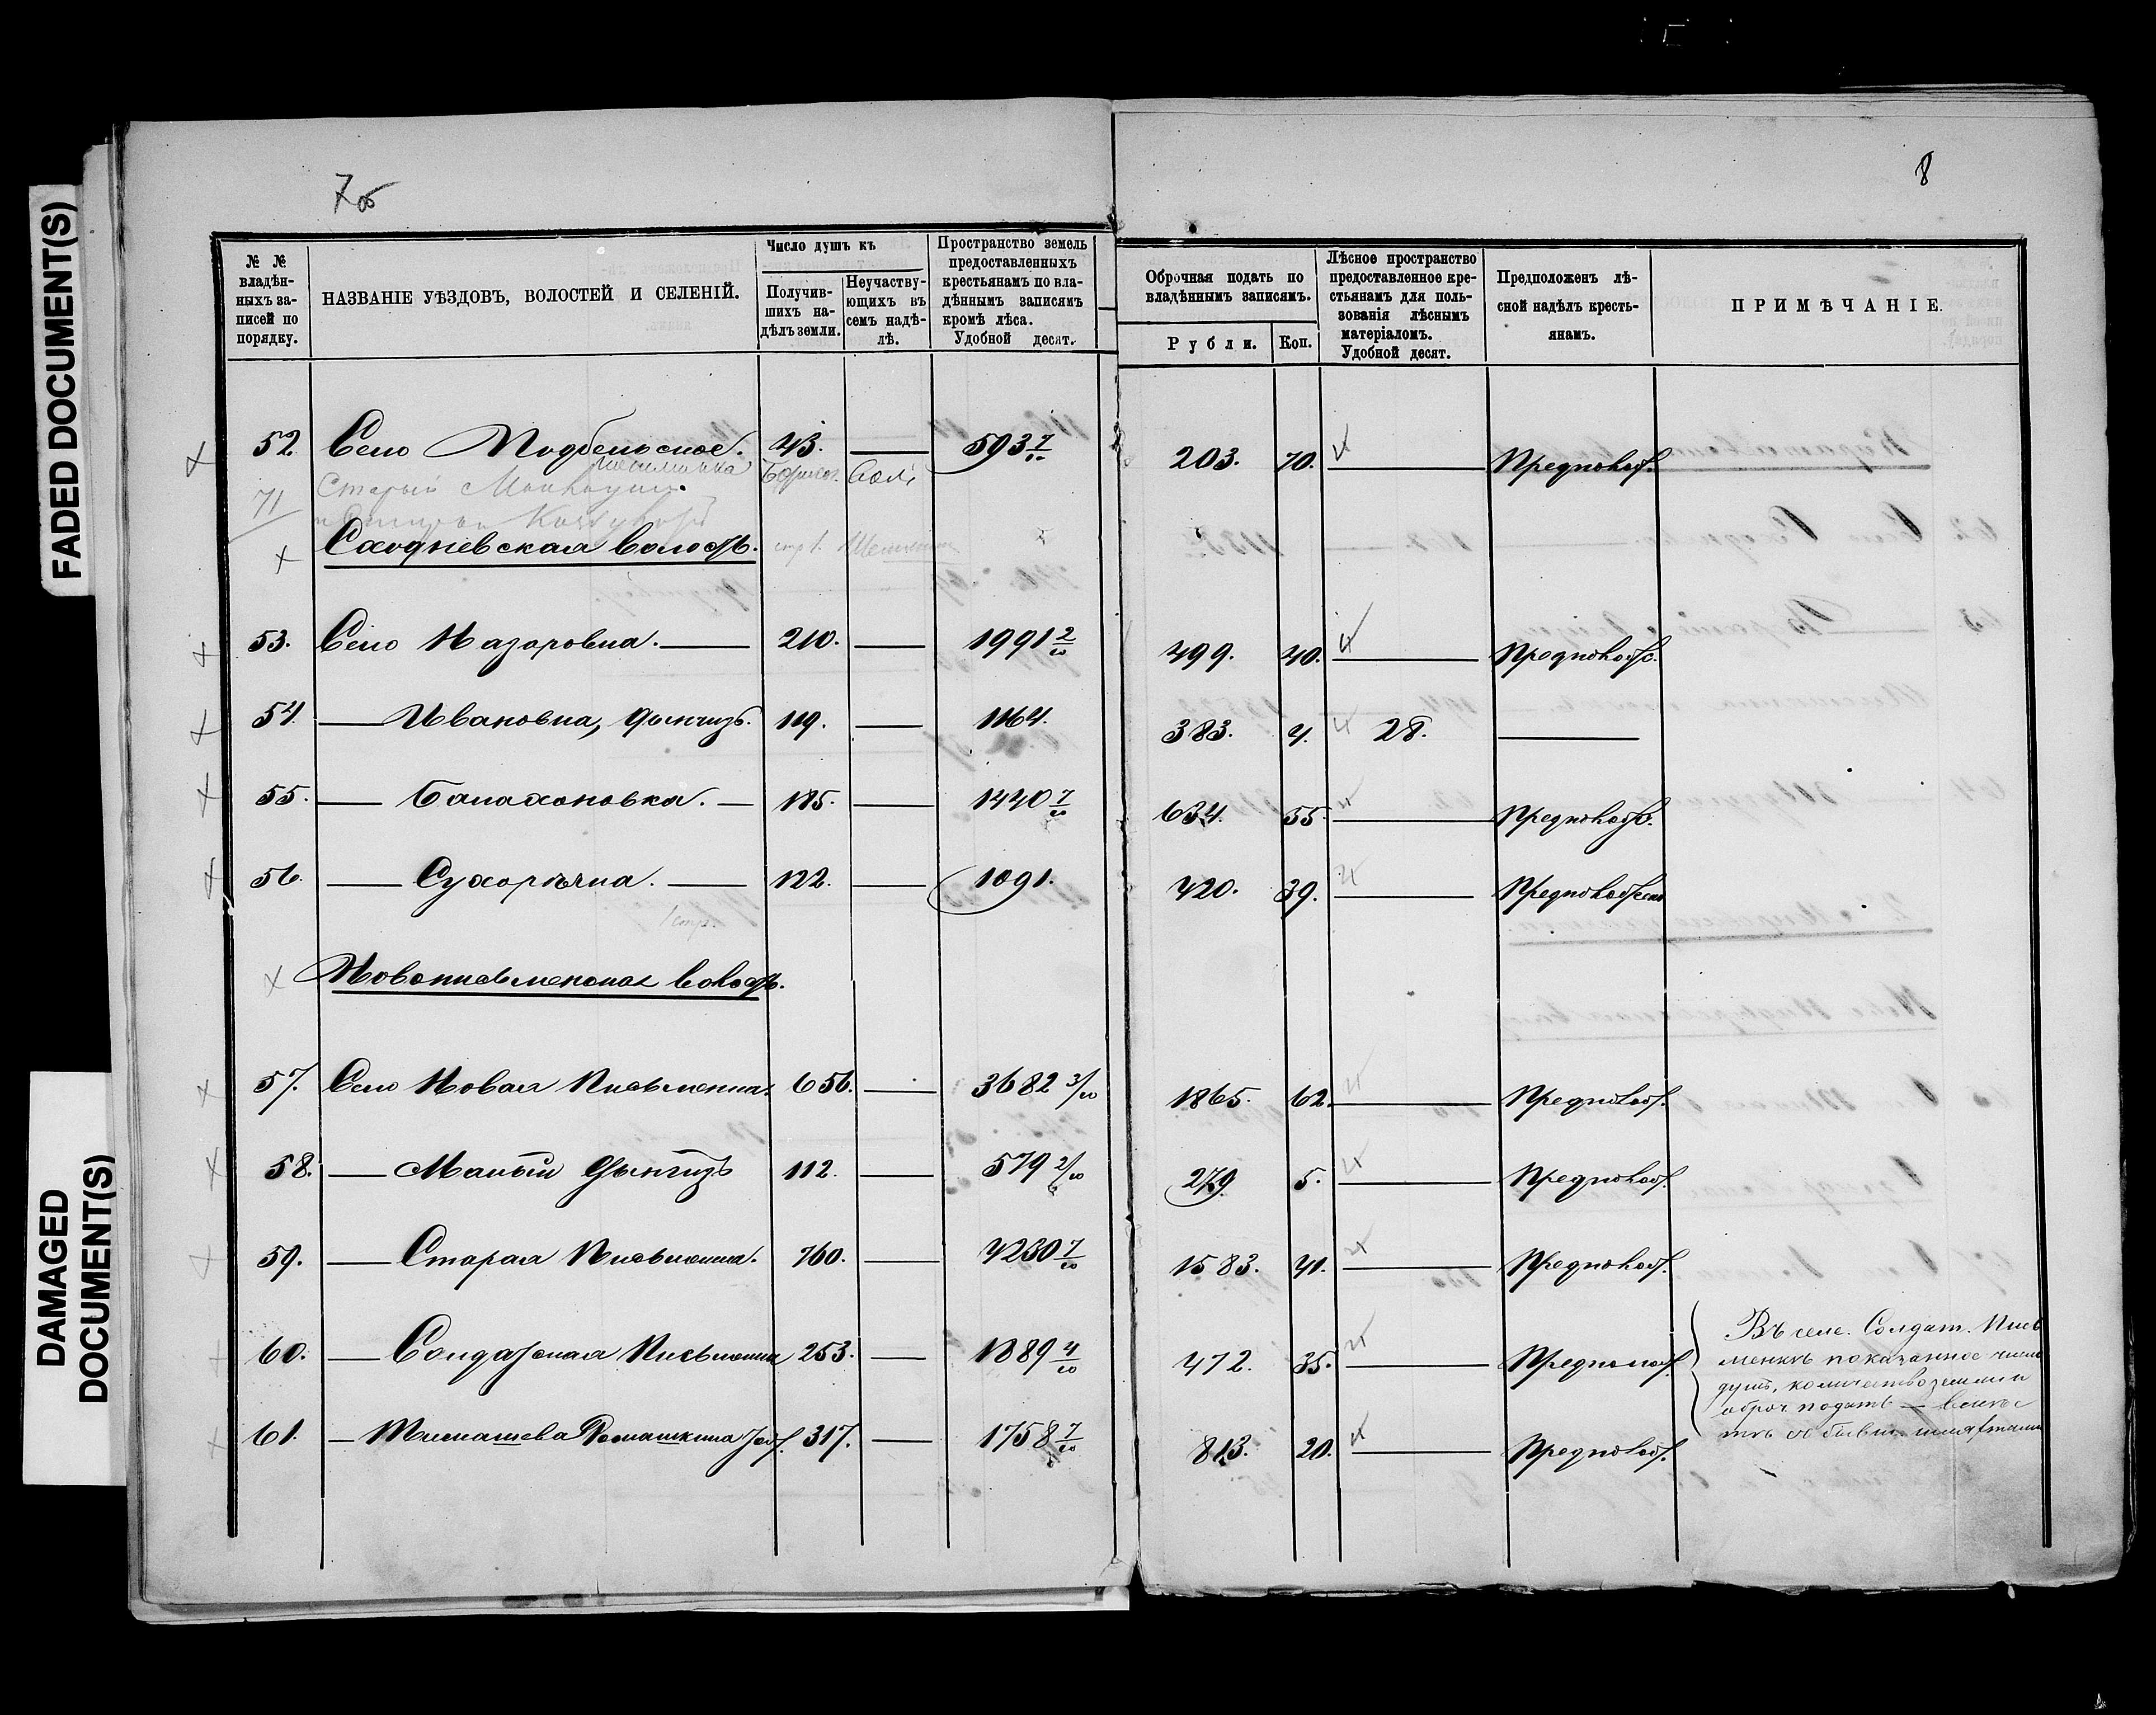 FADED DOCUMENT(S)
DAMAGED
DOCUMENT(S)
7об
8
№ №
владѣн-
ныхъ за-
писей по
порядку.
НАЗВАНІЕ УѢЗДОВЪ, ВОЛОСТЕЙ И СЕЛЕНІЙ.
Число душъ къ
Получив-
шихъ на-
дѣлъ земли.
Неучаству-
ющихъ въ
семъ надѣ-
лѣ.
Пространство земель
предоставленныхъ
крестьянамъ по вла-
дѣннымъ записямъ
кромѣ лѣса.
Удобной десят.
Оброчная подать по
владѣннымъ записямъ.
Рубли. Коп.
Лѣсное пространство
предоставленное кре-
стьянамъ для поль-
зованія лѣснымъ
матеріаломъ.
Удобной десят.
Предположенъ лѣ-
сной надѣлъ кресть-
янамъ.
ПРИМѢЧАНІЕ.
52. Село Подбельское. 43. — 593 7/10 203. 70. — Предполож.
71 Старый
Сходневская волость.
53. Село Назаровка. — 210. — 1991 2/10 499. 40. — Предполож.
54. — Ивановка, 119. — 1164. 383. 4. 28. —
55. — Балахоновка. — 185. — 1440 7/10 634. 55. — Предполож.
56. — Сухорѣчка. — 122. — 1091. 420. 39. — Предположен
1 стр.
Новописьменская волость.
57. Село Новая Письменка. 656. — 3682 3/10 1865. 62. — Предполож.
58. — Малый 112. — 579 2/10 279 5. — Предполож.
59. — Старая Письменка. 760. — 4230 7/10 1583. 41. — Предполож.
60. — Солдатская Письменка 253. — 1889 4/10 472. 35. — Предполож.
61. — Тимашева Ромашкина тож. 317. — 1758 7/10 813. 20. — Предполож.
Въ селе. Солдат. Пись
менкѣ показанное число
душъ, количество земли и
оброч. подать — вмѣс
тѣ съ бывш.